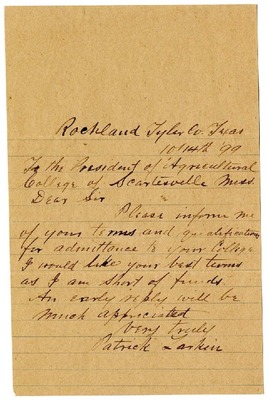 Rockland Tyler Co. Texas
10/14th '99
To the President of Agricultural
College of Scartesville Miss.
Dear Sir
Please inform me
of your terms and qualifications
for admittance to your College
I would like your best terms
as I am short of funds.
An early reply will be
much appreciated
Very Truly
Patrick Larkin